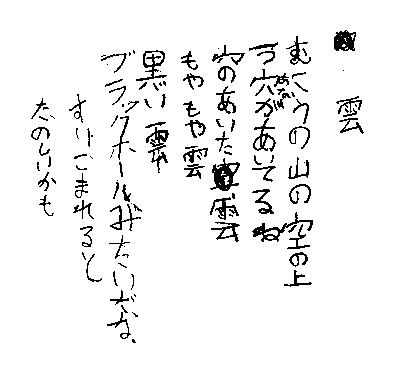 雲
むこうの山の空の上
穴があいてるね
穴のあいた雲
もやもや雲
黒い雲
ブラックホールみたいだな。
すいこまれると
たのしいかも